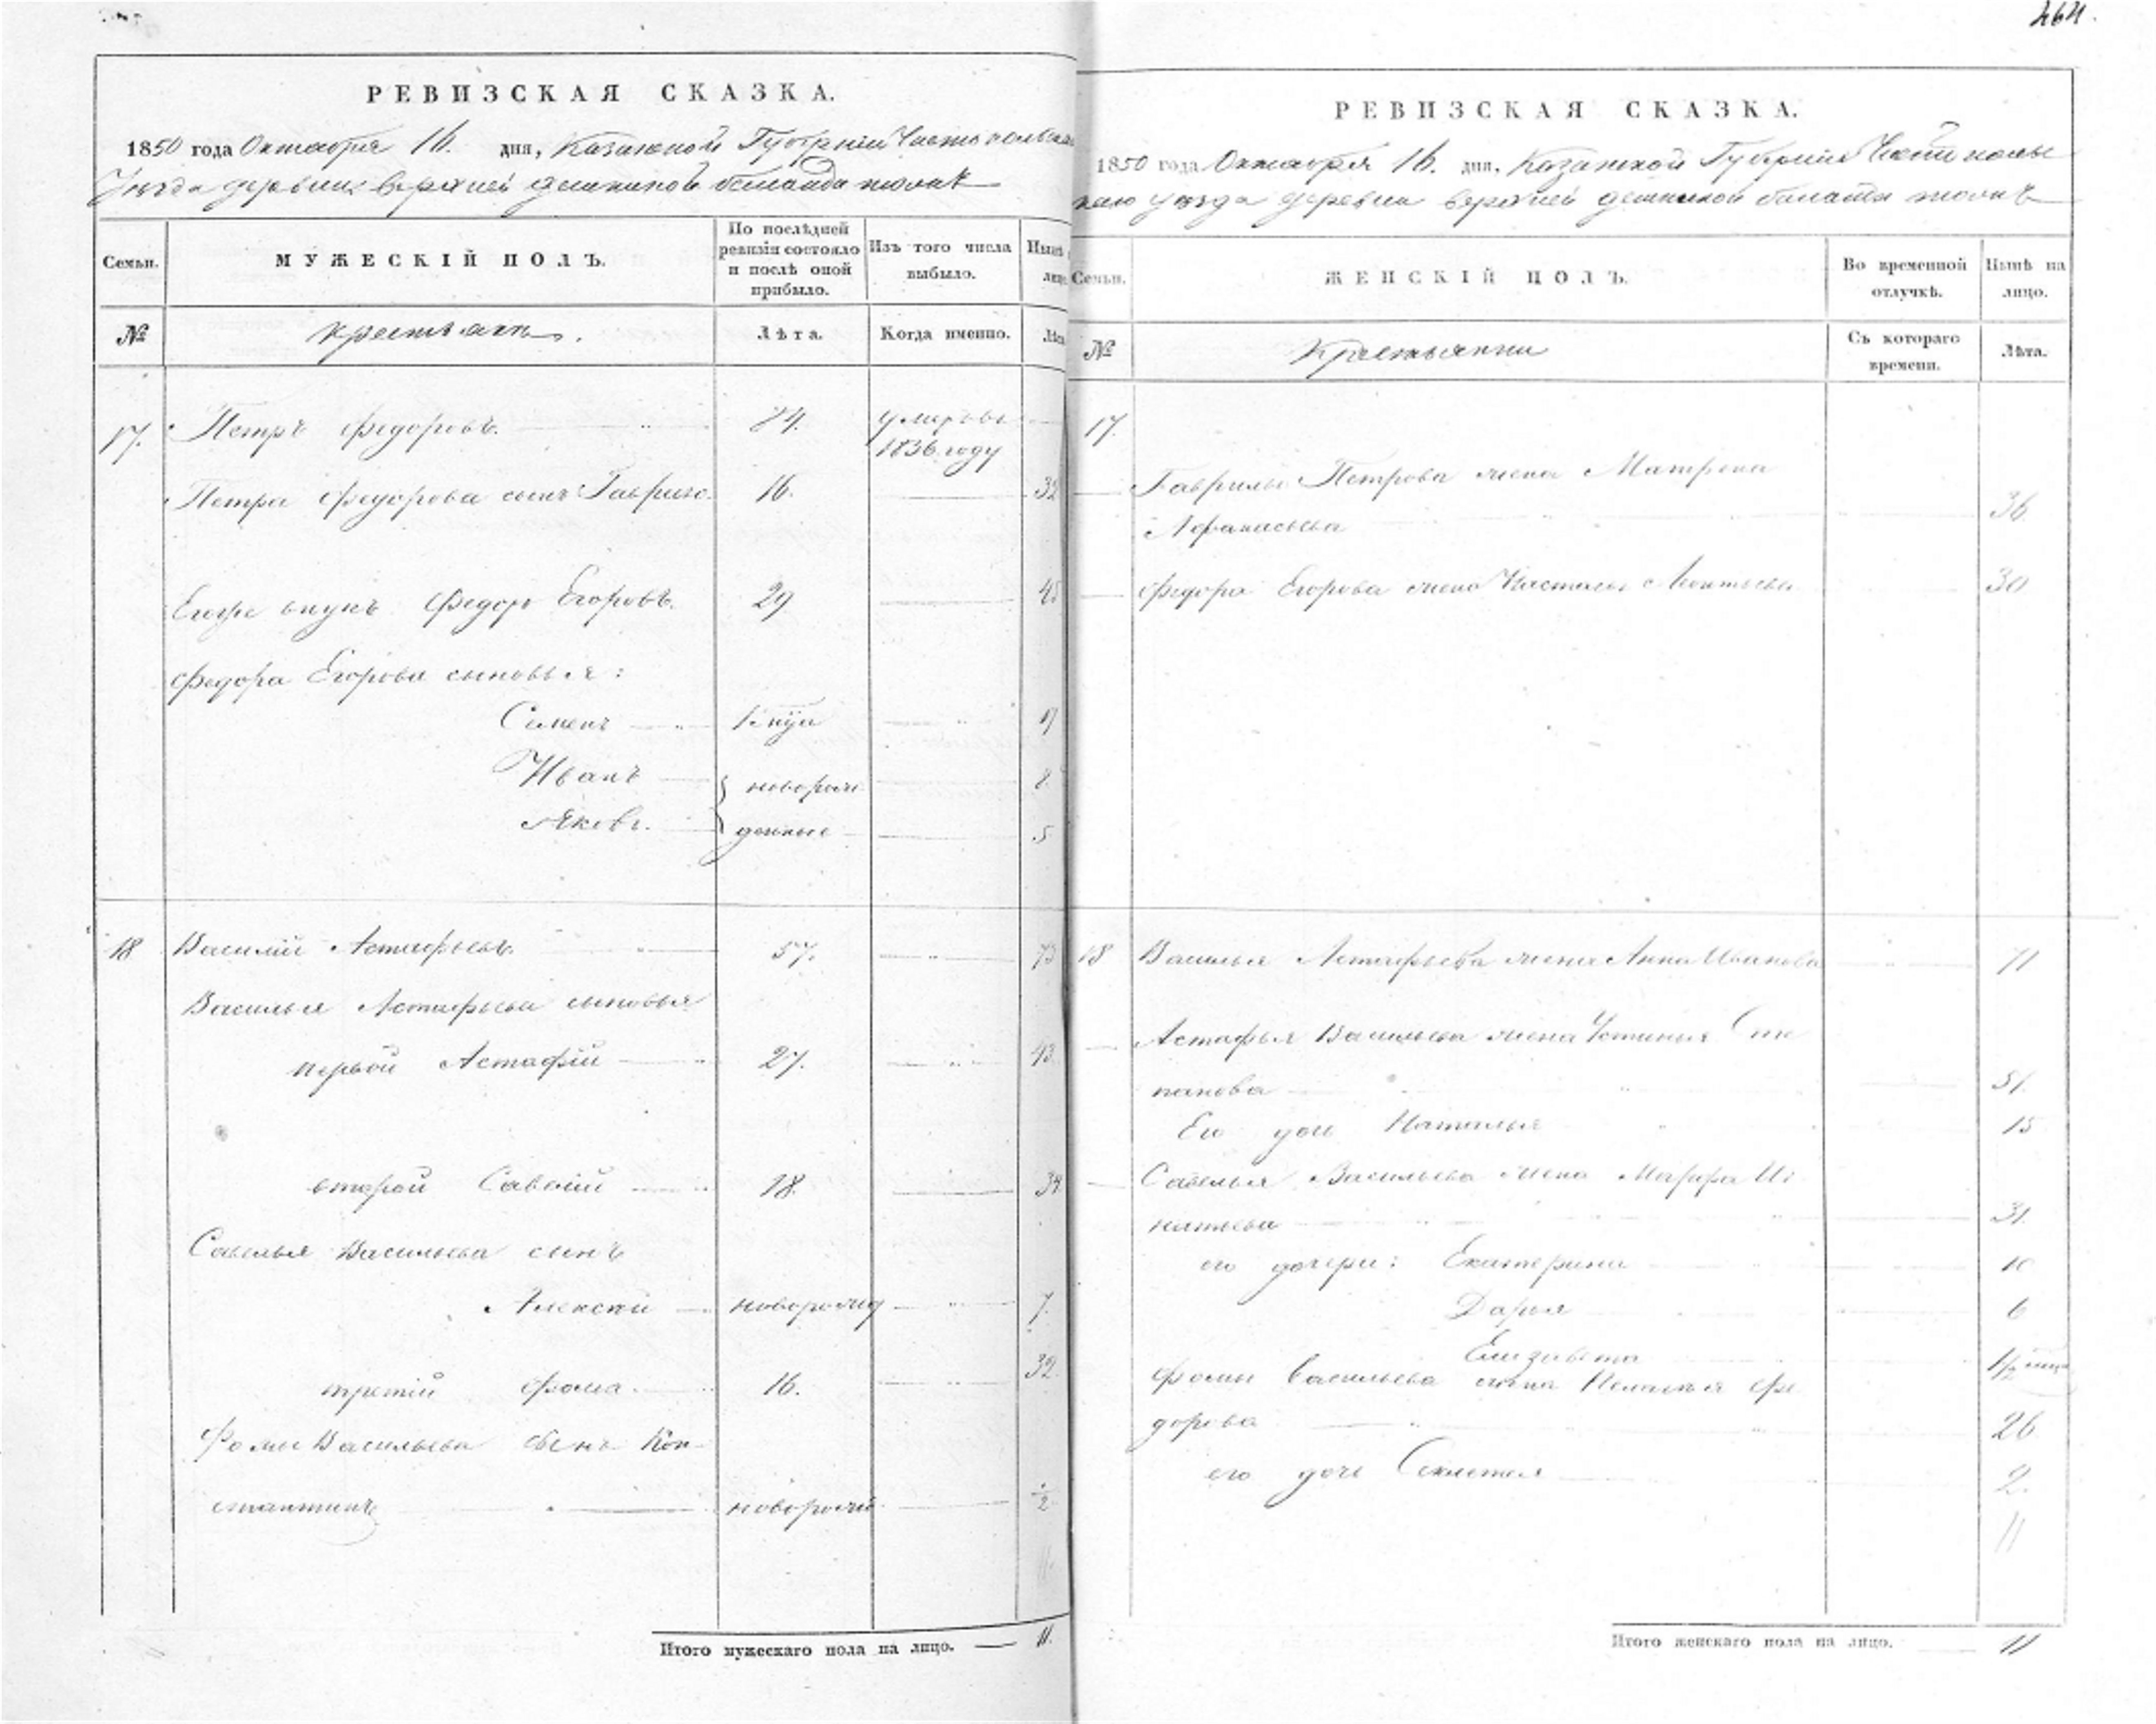 264.
РЕВИЗСКАЯ СКАЗКА.
1850 года Октября 16. дня, Казанской Губернии Чистопольска
Уезда деревни Верхней
Семьи.
МУЖЕСКІЙ ПОЛЪ.
По послѣдней ревизіи состояло и послѣ оной прибыло.
Изъ того числа выбыло.
№
Крестьянъ.
Лѣта.
Когда именно.
17. Петръ Федоровъ. умеръ въ
1836 году
Петра Федорова сынъ Гаврило 16. 32
Егоже внукъ Федоръ Егоровъ. 29 45
Федора Егорова сыновья:
Семенъ 1 17
Иванъ новорож 8
Яковъ. денные 5
18 Василій Астафьевъ. 57. 73
Василья Астафьева сыновья
первой Астафій 27. 43
второй Савелій 18. 34
Савелья Васильева сынъ
Алексей новорожд 7.
третій Фома. 16. 32
Фомы Васильева сынъ Кон-
стантинъ новорожд 1/2
11.
Итого мужескаго пола на лицо. 11.
РЕВИЗСКАЯ СКАЗКА.
1850 года Октября 16. дня. Казанской Губерніи Чистополь
скаго уезда деревни Верхней
Семьи.
ЖЕНСКІЙ ПОЛЪ.
Во временной отлучкѣ.
Нынѣ на лицо.
№
Крестьянки
Съ котораго времени.
Лѣта.
17.
Гаврилы Петрова жена Матрена
Афанасьева 36
Федора Егорова жена Настасья Леонтьева 30
18 Василья Астафьева жена Анна Иванова 71
Астафья Васильева жена Устинья Сте
панова 51
Его дочь Наталья 15
Савелья Васильева жена Марфа Иг
натьева 31
его дочери: Екатерина 10
Дарья 6
Елизавета 1/2
Фомы Васильева жена Пелагея Фе
дорова 26
его дочь Секлетея 2.
11
Итого женскаго пола на лицо. 11